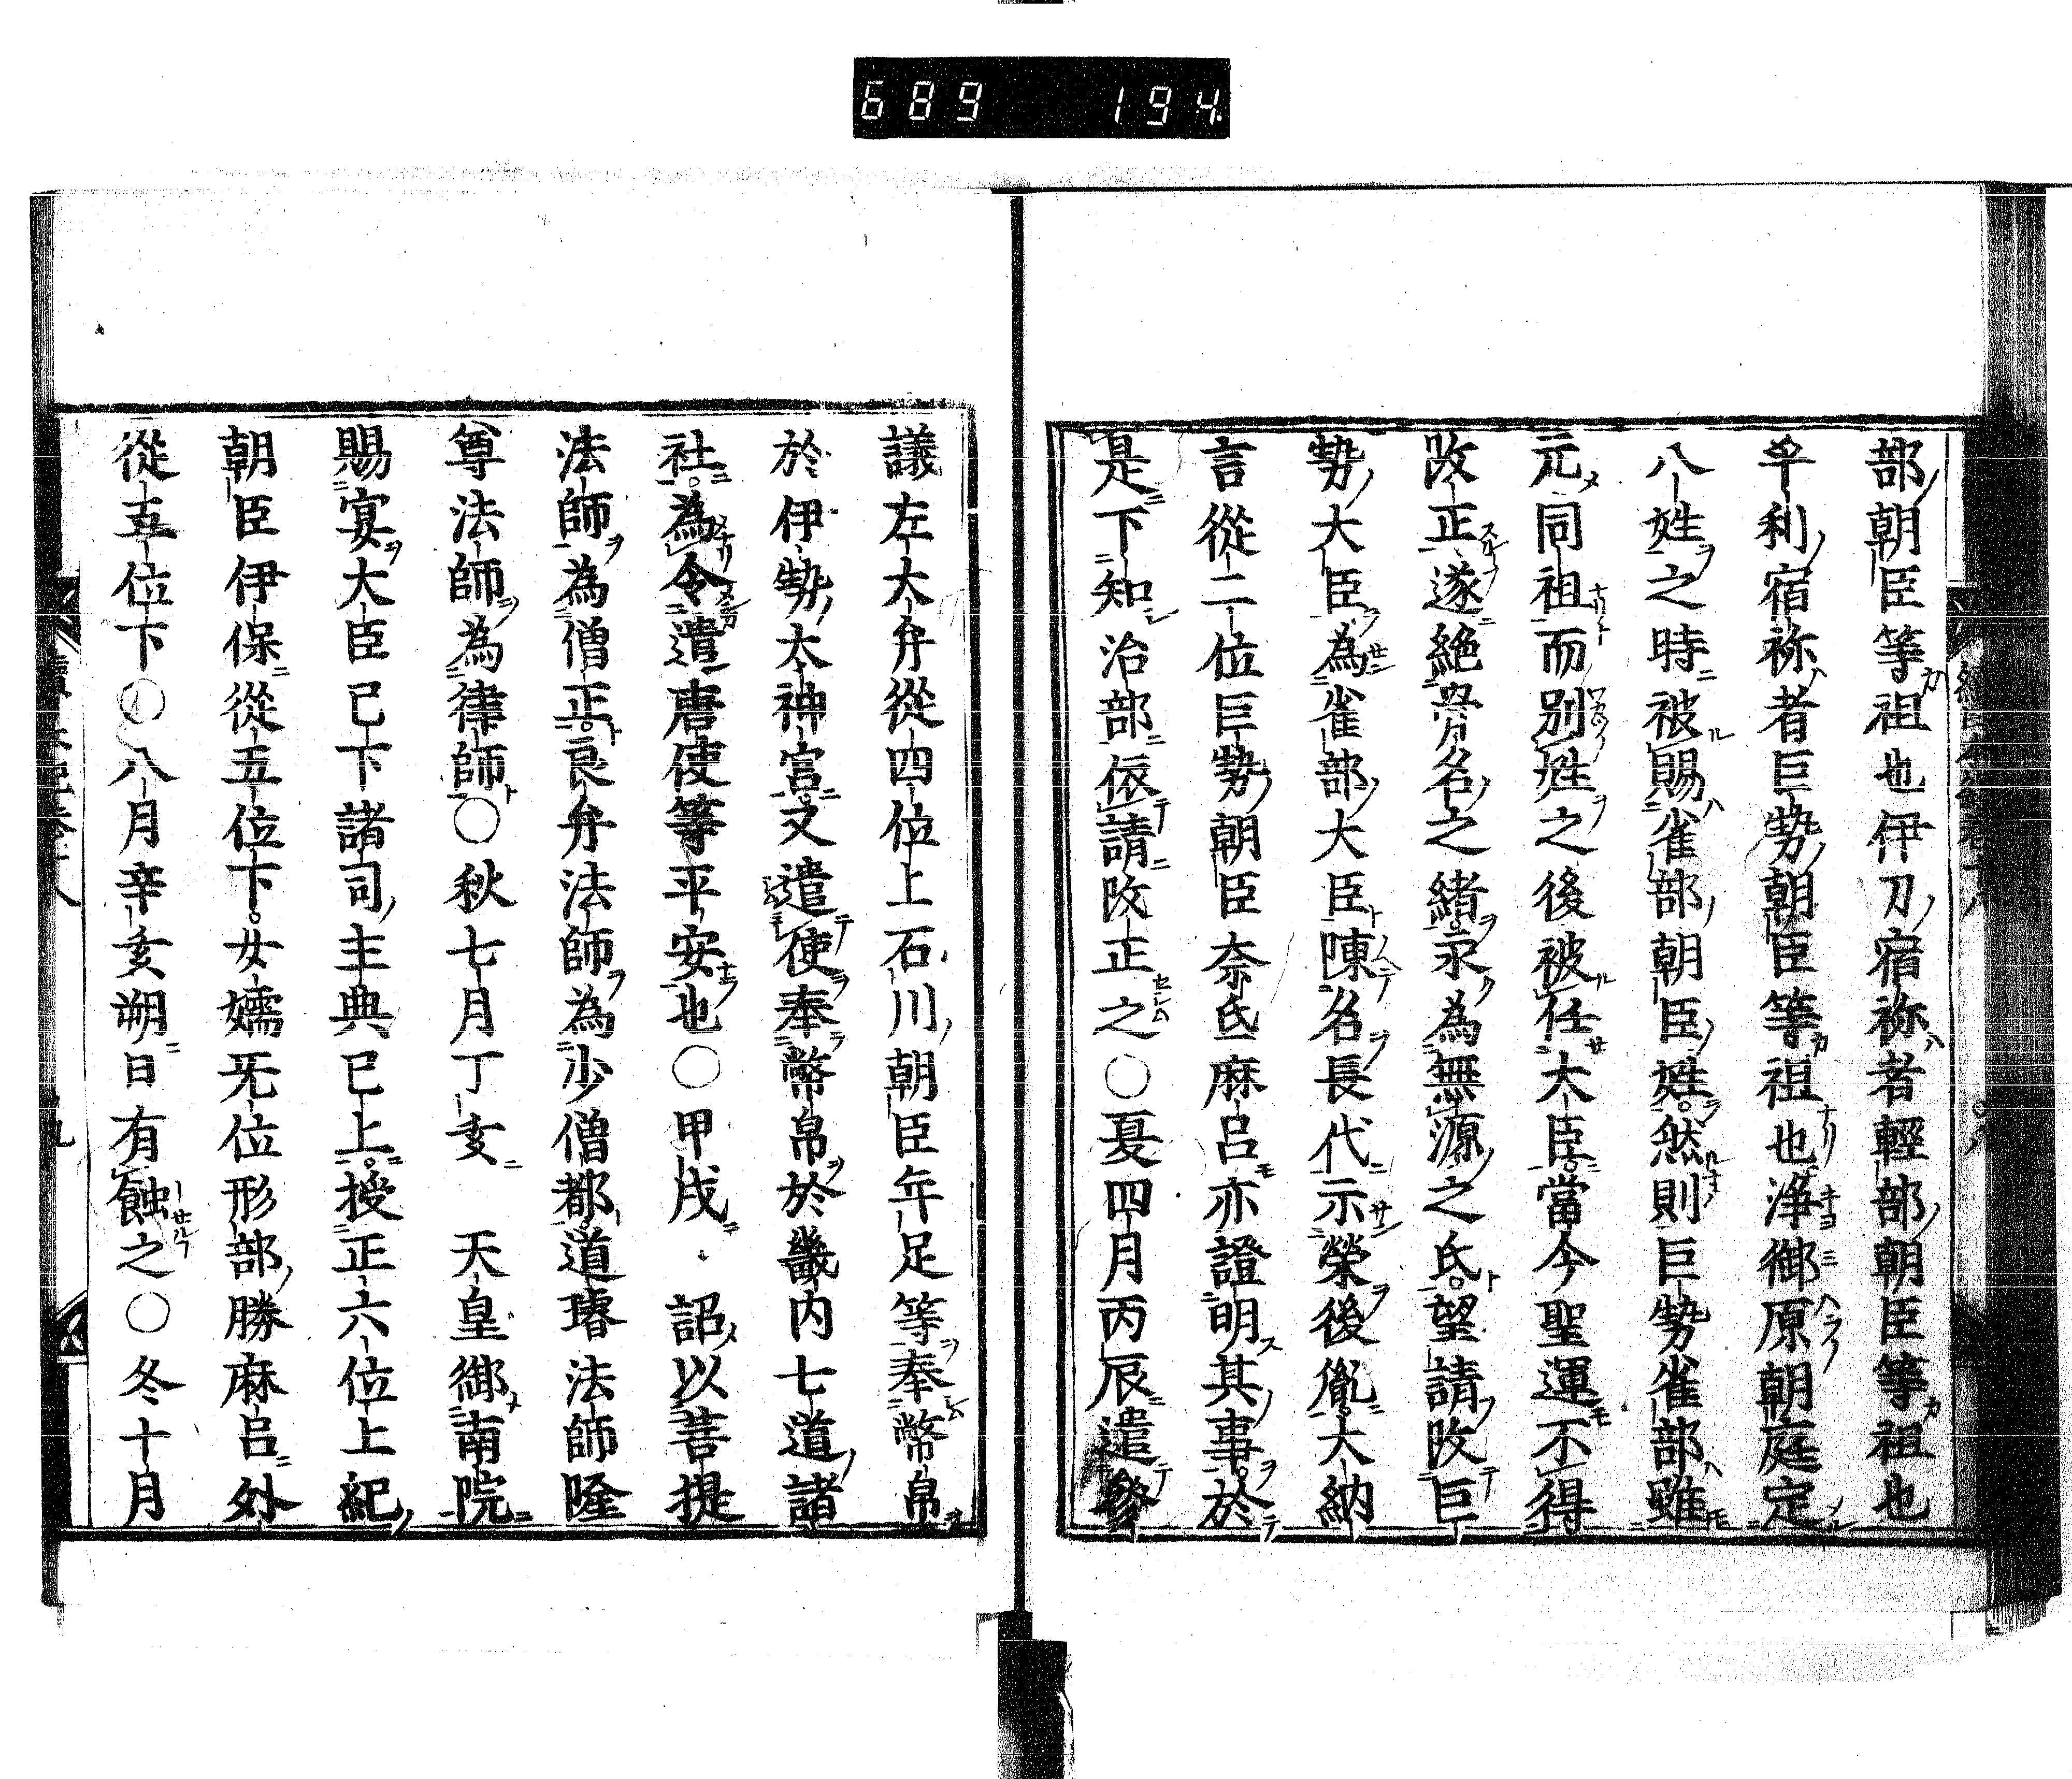 689 194
部朝臣等祖也伊刀宿祢者輕部朝臣等祖也
乎利宿祢者巨勢朝臣等祖也浄御原朝庭定
八姓之時被賜雀部朝臣姓然則巨勢雀部雖
元同祖而別姓之後被任大臣當今聖運不得
改正遂絕骨名之緒永為無源之氏望請改巨
勢大臣為雀部大臣陳名長代示榮後胤大納
言從二位巨勢朝臣奈氐麻呂亦證明其事於
是下知治部依請改正之〇夏四月丙辰遣參
議左大弁從四位上石川朝臣年足等奉幣帛
於伊勢太神宮又遣使奉幣帛於畿内七道諸
社為令遣唐使等平安也〇甲戌 詔以菩提
法師為僧正良弁法師為少僧都道璿法師隆
尊法師為律師〇秋七月丁亥 天皇御南院
賜宴大臣已下諸司主典已上授正六位上紀
朝臣伊保從五位下女嬬无位形部勝麻呂外
從五位下〇八月辛亥朔日有蝕之〇冬十月